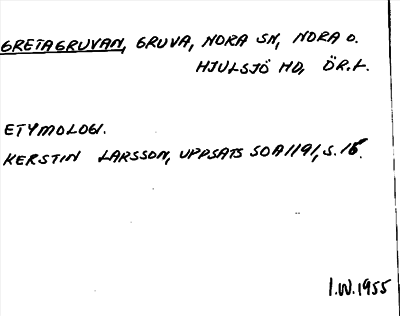 GRETAGRUVAN, GRUVA, NORA SN, NORA O.
HJULSJÖ HD, ÖR.L.
ETYMOLOGI.
KERSTIN LARSSON, UPPSATS SOA 1191, S. 15.
I.W. 1955